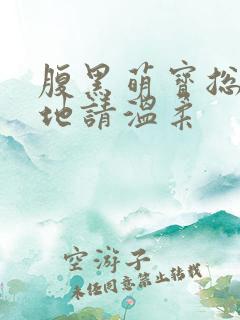 腹黑萌寶總
地請溫柔
空游子
未经同意禁止转载